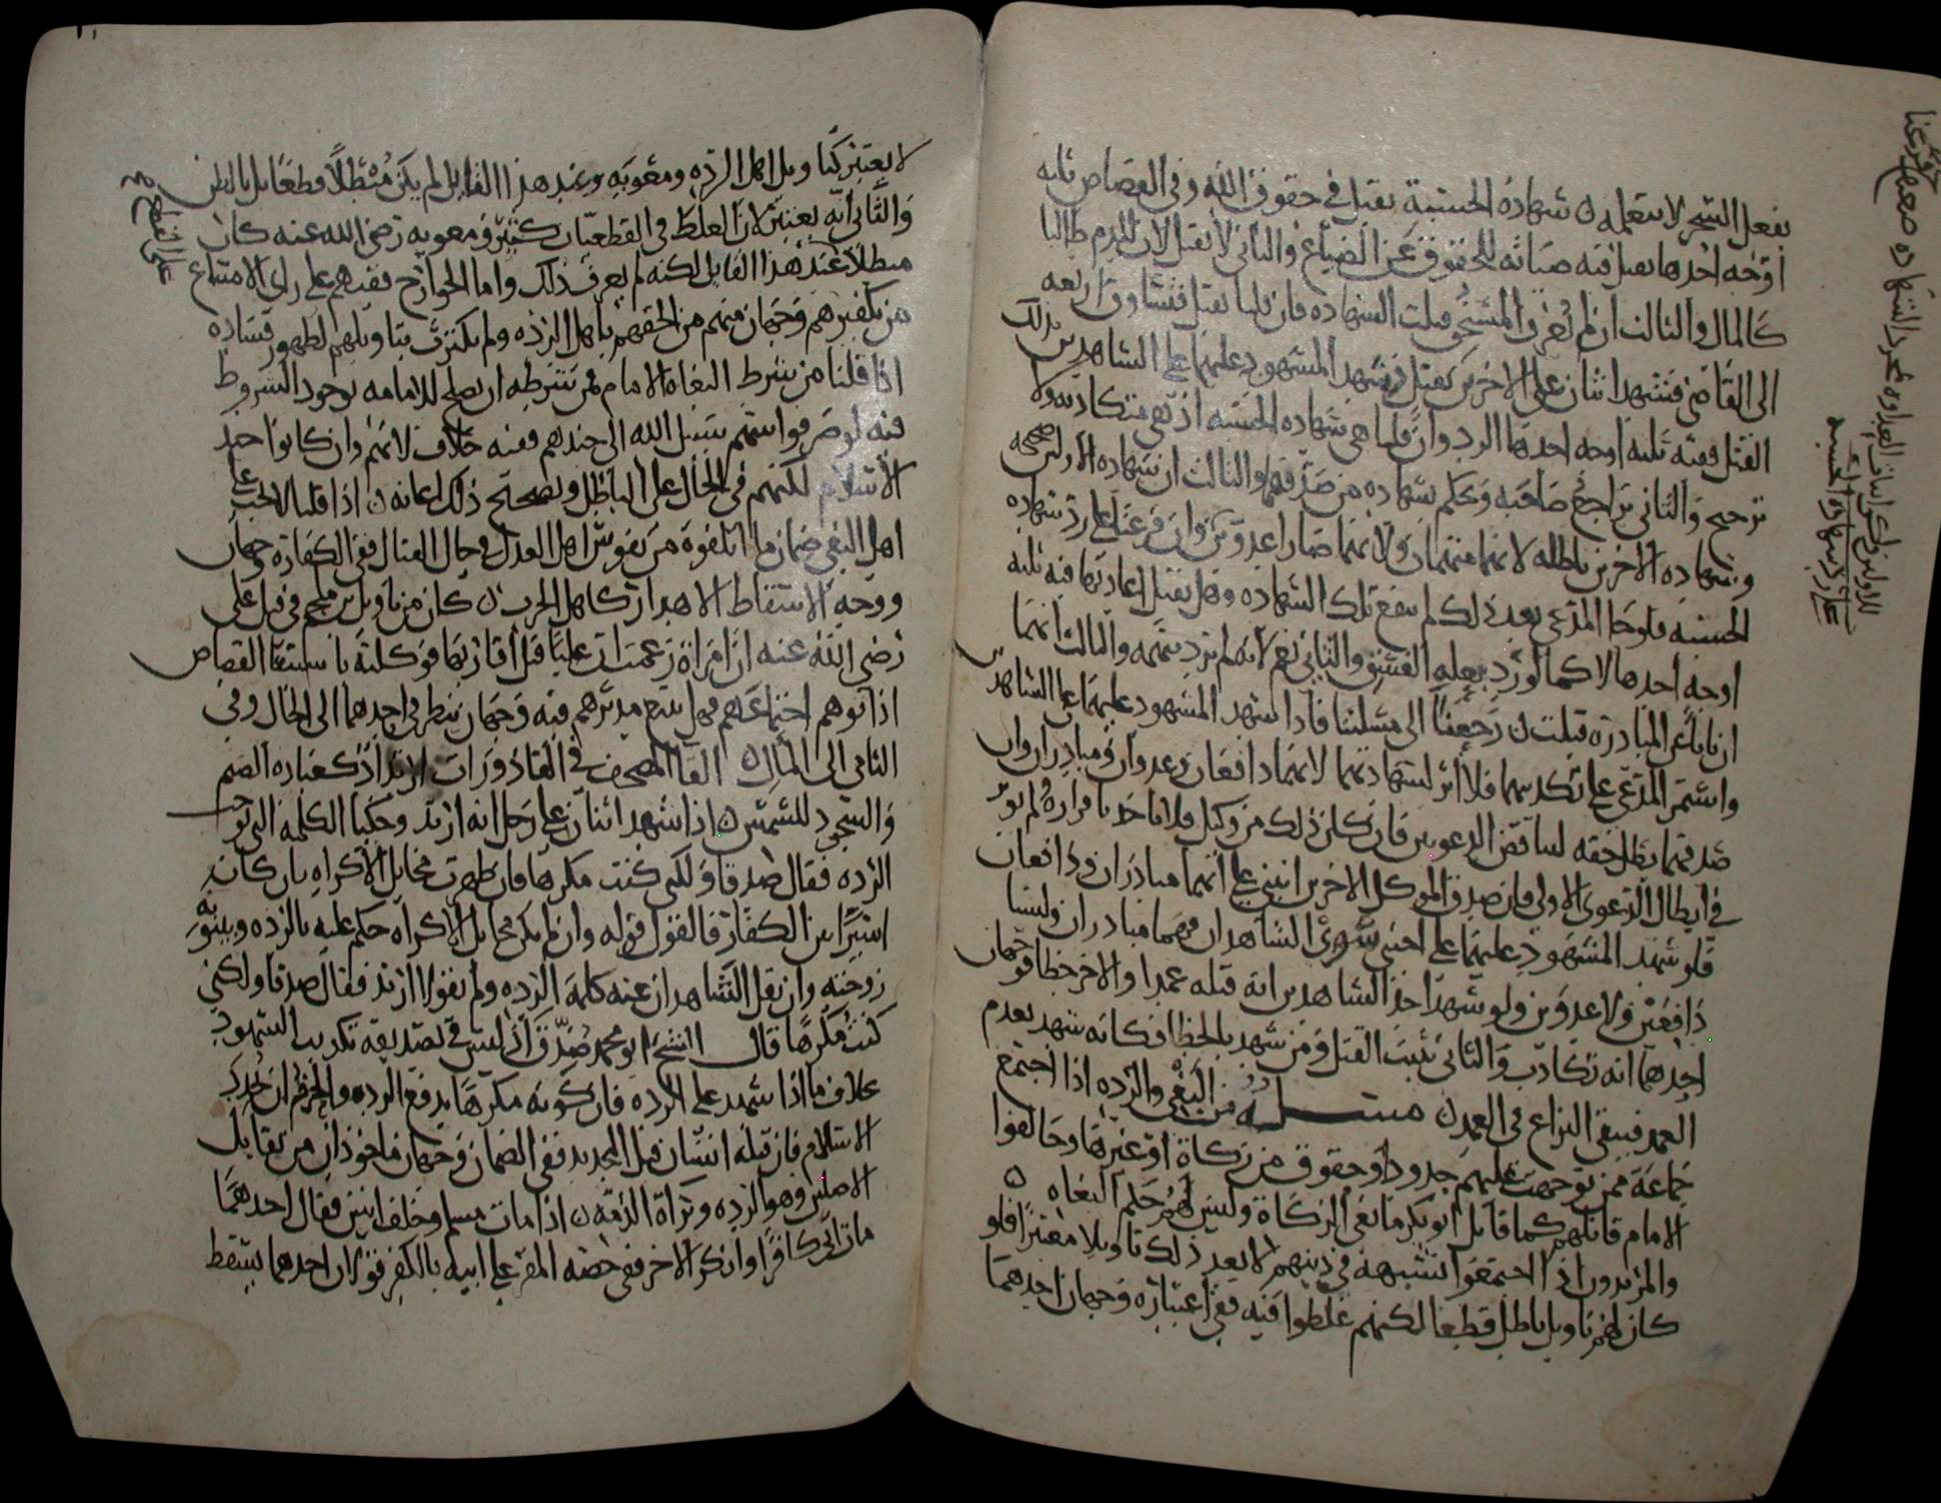 بفعل السحر لا بتعلمه ن شهادة الحسبة تقبل في حقوق الله وفي القصاص ثلثه
اوجه احدها تقبل فيه صيانه للحقوق عن الضياع والثاني لا تقبل لان للدم طالبا
كالمال والثالث ان لم يعرف المستحق قبلت الشهاده فان قلنا تقبل فتساوق اربعه
الى القاضي فشهد اثنان على الاخرين بقتل فشهد المشهود عليهما على الشاهدين بذلك
القتل ففيه ثلثه اوجه احدها الرد وان قلنا هي شهاده الحسبه اذ هي متكاذبه ولا
ترجيح والثاني يراجع صاحبه وحكم بشهاده من صدقهما والثالث ان شهاده الاولين صحيحه
وشهاده الاخرين باطله لانهما متهمان ولانهما صارا عدوين وان فرعنا على رد شهاده
الحسبه فلو جا المدعي بعد ذلك لم تنفع تلك الشهاده وهل تقبل اعادتها فيه ثلثه
اوجه احدها لا كما لو رد بعله الفسق والثاني نعم لانه لم ترد بتهمه والثالث انهما
ان تابا عن المبادرة قبلت ن رجعنا الى مسلتنا فاذا شهد المشهود عليهما على الشاهدين
واستمر المدعي على تكذيبهما فلا اثر لشهادتهما لانهما دافعان وعدوان ومبادران وان
صدقهما بطل حقه لتناقض الدعويين فان كان ذلك من وكيل فلا يواخذ باقراره ولم يوثر
في ابطال الدعوى الاولى فان صدق الموكل الاخرين انبنى على انهما مبادران ودافعان
فلو شهد المشهود عليهما على اجنبي سوى الشاهدان فهما مبادران وليسا
دافعين ولا عدوين ولو شهد احد الشاهدين انه قتله عمدا والاخر خطا فوجهان
احدهما انه تكاذب والثاني يثبت القتل ومن شهد بالخطا فكانه شهد بعدم
العمد فيبقى النزاع في العمد ن مسله من البغي والرده اذا اجتمع
جماعة ممن توجهت عليهم حدود او حقوق من زكاة او غيرها وخالفوا
الامام قاتلهم كما قاتل ابو بكر مانعي الزكاة وليس لهم حكم البغاه ن
والمرتدون اذا اجتمعوا بشبهة في دينهم لا يعد ذلك تاويلا معتبرا فلو
كان لهم تاويل باطل قطعا لكنهم غلطوا فيه ففي اعتباره وجهان احدهما
لا يعتبر كتاويل اهل الرده ومعويه وعند هذا القايل لم يكن مبطلا قطعا بل بالظن
والثاني انه يعتبر لان الغلط في القطعيات كثير ومعويه رضي الله عنه كان
مبطلا عند هذا القايل لكنه لم يعرف ذلك واما الخوارج ففيهم على راي الامتناع
من تكفيرهم وجهان فمنهم من الحقهم باهل الرده ولم يكترث بتاويلهم لظهور فساده
اذا قلنا من شرط البغاه الامام فمن شرطه ان يصلح للامامه بوجود الشروط
فيه لو صرفوا سهم سبيل الله الى جندهم ففيه خلاف لانهم وان كانوا جند
الاسلام لكنهم في الحال على الباطل وتصحيح ذلك اعانه ن اذا قلنا لا يجب على
اهل البغي ضمان ما اتلفوه من نفوس اهل العدل في حال القتال ففي الكفارة وجهان
ووجه الاسقاط الاهدار كاهل الحرب ن كان من تاويل بن ملجم في قتل علي
رضي الله عنه ان امراة زعمت ان عليا قتل اقاربها فوكلته باستيفا القصاص
اذا توهم اجتماعهم فهل يتبع مدبرهم فيه وجهان ينظر في احدهما الى الحال وفي
الثاني الى المال ن القا المصحف في القاذورات ارتداد كعباره الصنم
والسجود للشمس ن اذا شهد اثنان على رجل انه ارتد وحكيا الكلمه التي توجب
الرده فقال صدقا ولكني كنت مكرها فان ظهرت مخايل الاكراه بان كان
اسيرا بين الكفار فالقول قوله وان لم يكن مخايل الاكراه حكم عليه بالرده وبينونه
زوجته وان نقل الشاهدان عنه كلمة الرده ولم يقولا ارتد فقال صدقا ولكني
كنت مكرها قال الشيخ ابو محمد صدق اذ ليس في تصديقه تكذيب الشهود
بخلاف ما اذا شهد على الرده فان كونه مكرها يدفع الرده والحزم ان يجدد
الاسلام فان قتله انسان قبل التجديد ففي الضمان وجهان ماخوذان من تقابل
الاصلين وهو الرده وبراة الذمه ن اذا مات مسلم وخلف ابنين فقال احدهما
مات ابي كافرا وانكر الاخر ففي حصه المقر على ابيه بالكفر قولان احدهما يسقط